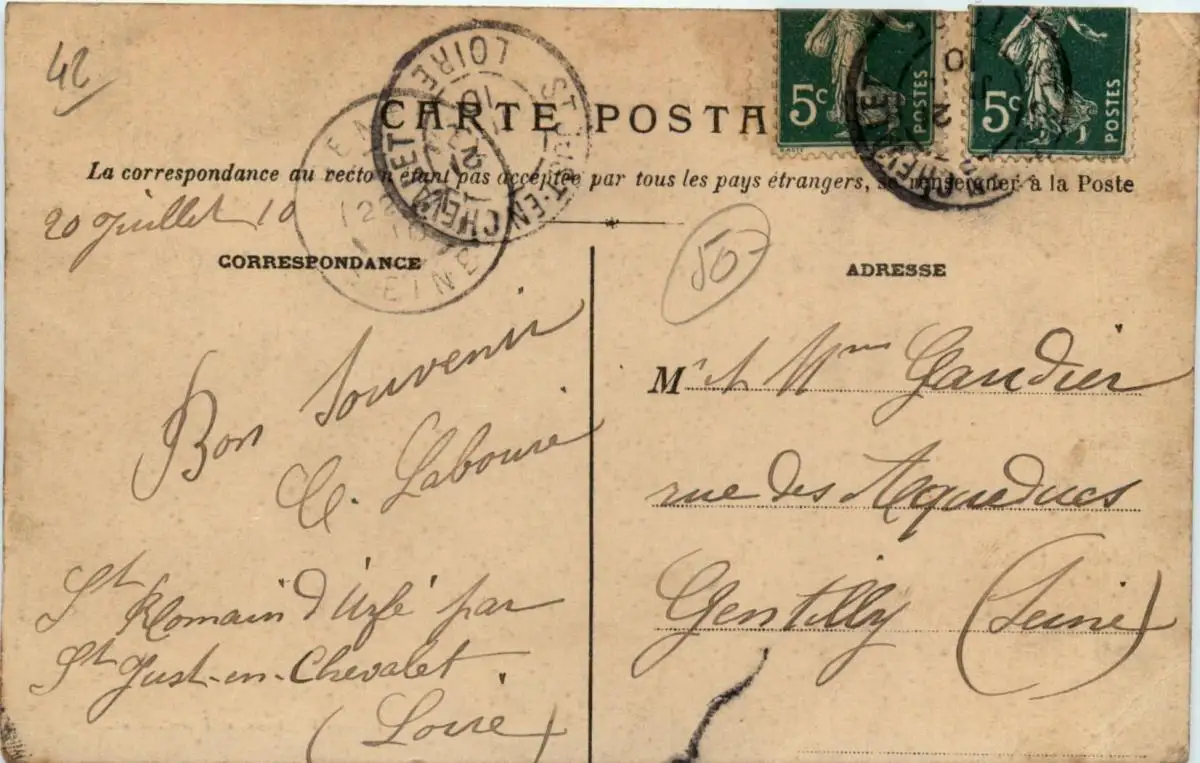 42
5c POSTES
5c POSTES
CARTE POSTA
La correspondance au recto n'étant pas acceptée par tous les pays étrangers, se renseigner à la Poste
ST JUST-EN-CHEVALET
LOIRE
20 Juillet 10
CORRESPONDANCE
Bon Souvenir
C. Laboure
St Romain d'Urfé par
St Just-en-Chevalet
(Loire)
50-
ADRESSE
Mr et Mme Gaudier
rue des Aqueducs
Gentilly (Seine)